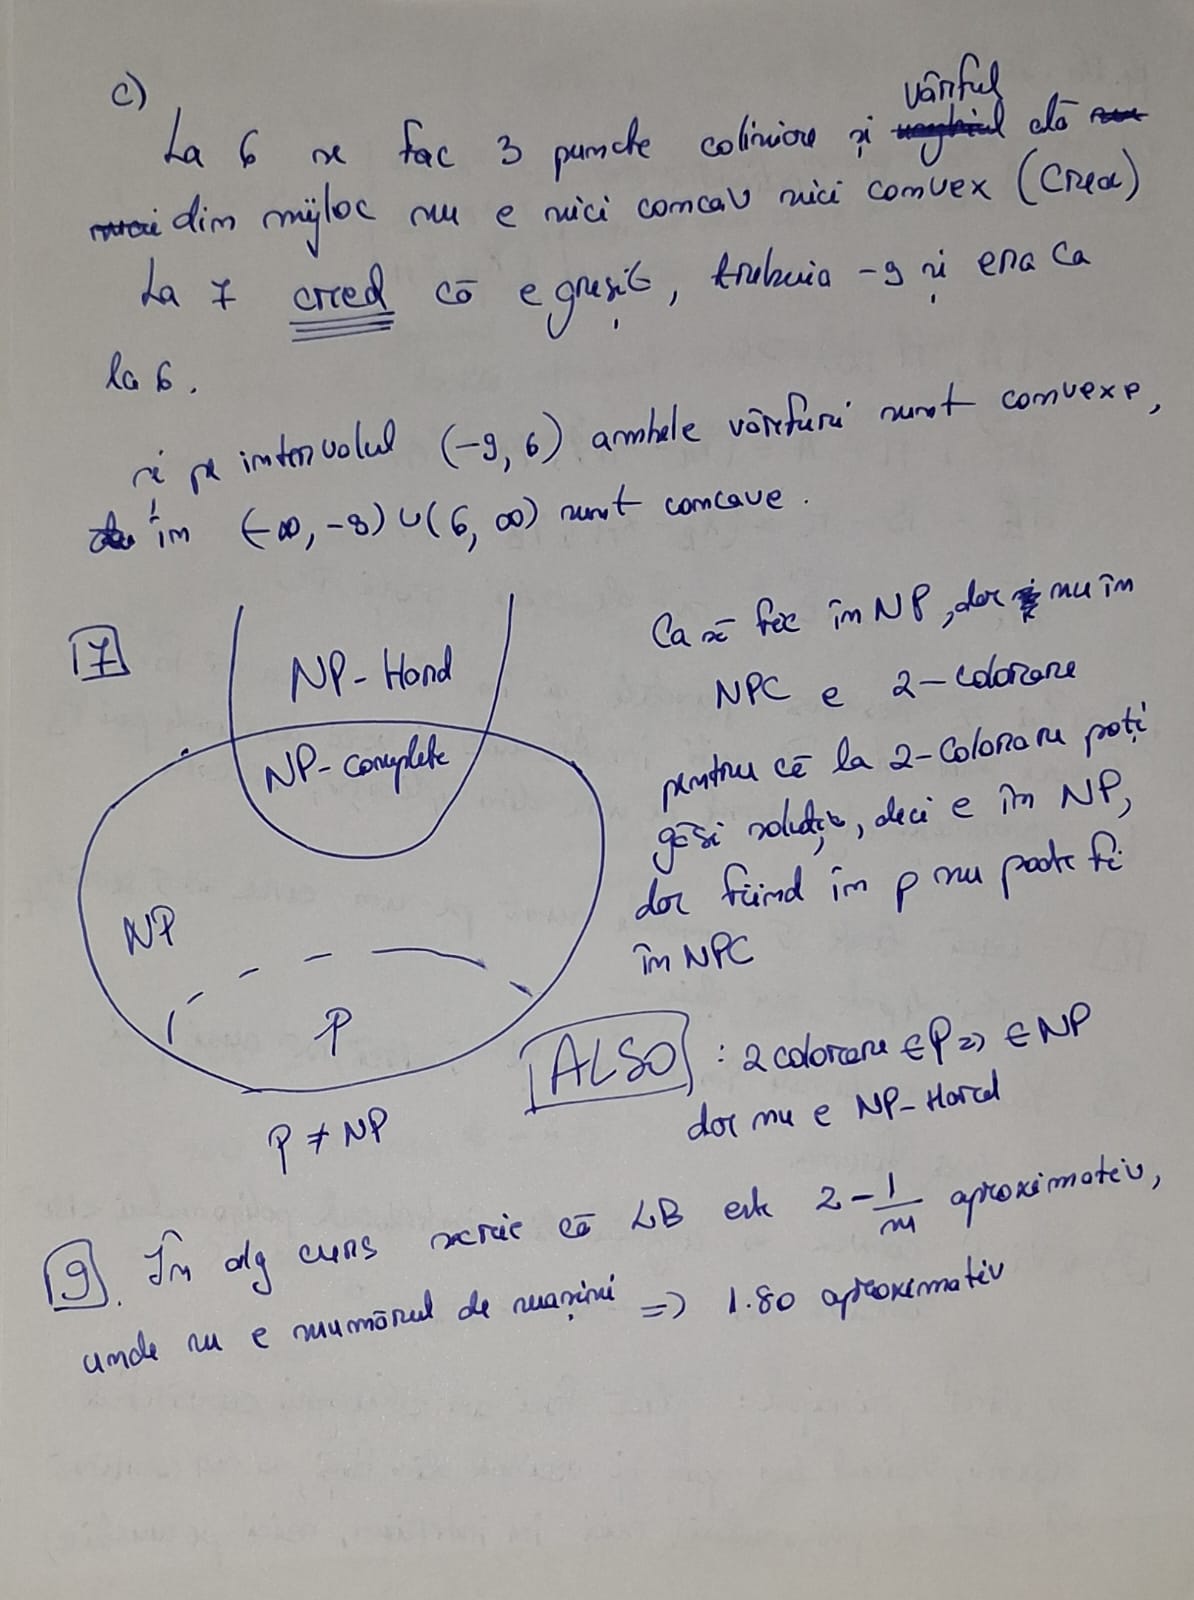 c)
vârful
La 6 se fac 3 puncte coliniare și ăla
din mijloc nu e nici concav nici convex (Cred)
La 7 cred că e greșit, trebuia -9 și era ca
la 6.
și pe intervalul (-9, 6) ambele vârfuri sunt convexe,
în (-∞, -9) ∪ (6, ∞) sunt concave.
7
NP-Hard
NP-Complete
NP
P
P ≠ NP
Ca să fie în NP, dar nu în
NPC e 2-colorare
pentru că la 2-colorare poți
găsi soluția, deci e în NP,
dar fiind în P nu poate fi
în NPC
ALSO : 2 colorare ∈ P => ∈ NP
dar nu e NP-Hard
9. În alg curs scrie că LB este 2 - 1/m aproximativ,
unde m e numărul de mașini => 1.80 aproximativ